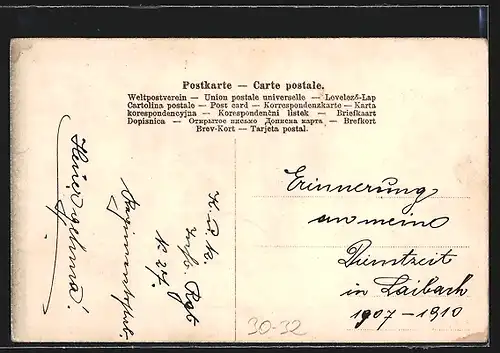 Postkarte — Carte postale.
Weltpostverein — Union postale universelle — Levelező-Lap
Cartolina postale — Post card — Korrespondenzkarte — Karta
korespondencyjna — Korespondenční lístek — Briefkaart
Dopisnica — Открытое письмо Дописна карта — Brefkort
Brev-Kort — Tarjeta postal.
Erinnerung
an meine
Dienstzeit
in Laibach
1907 – 1910
K. u. K.
Inft. Rgt
N. 27.
30-32